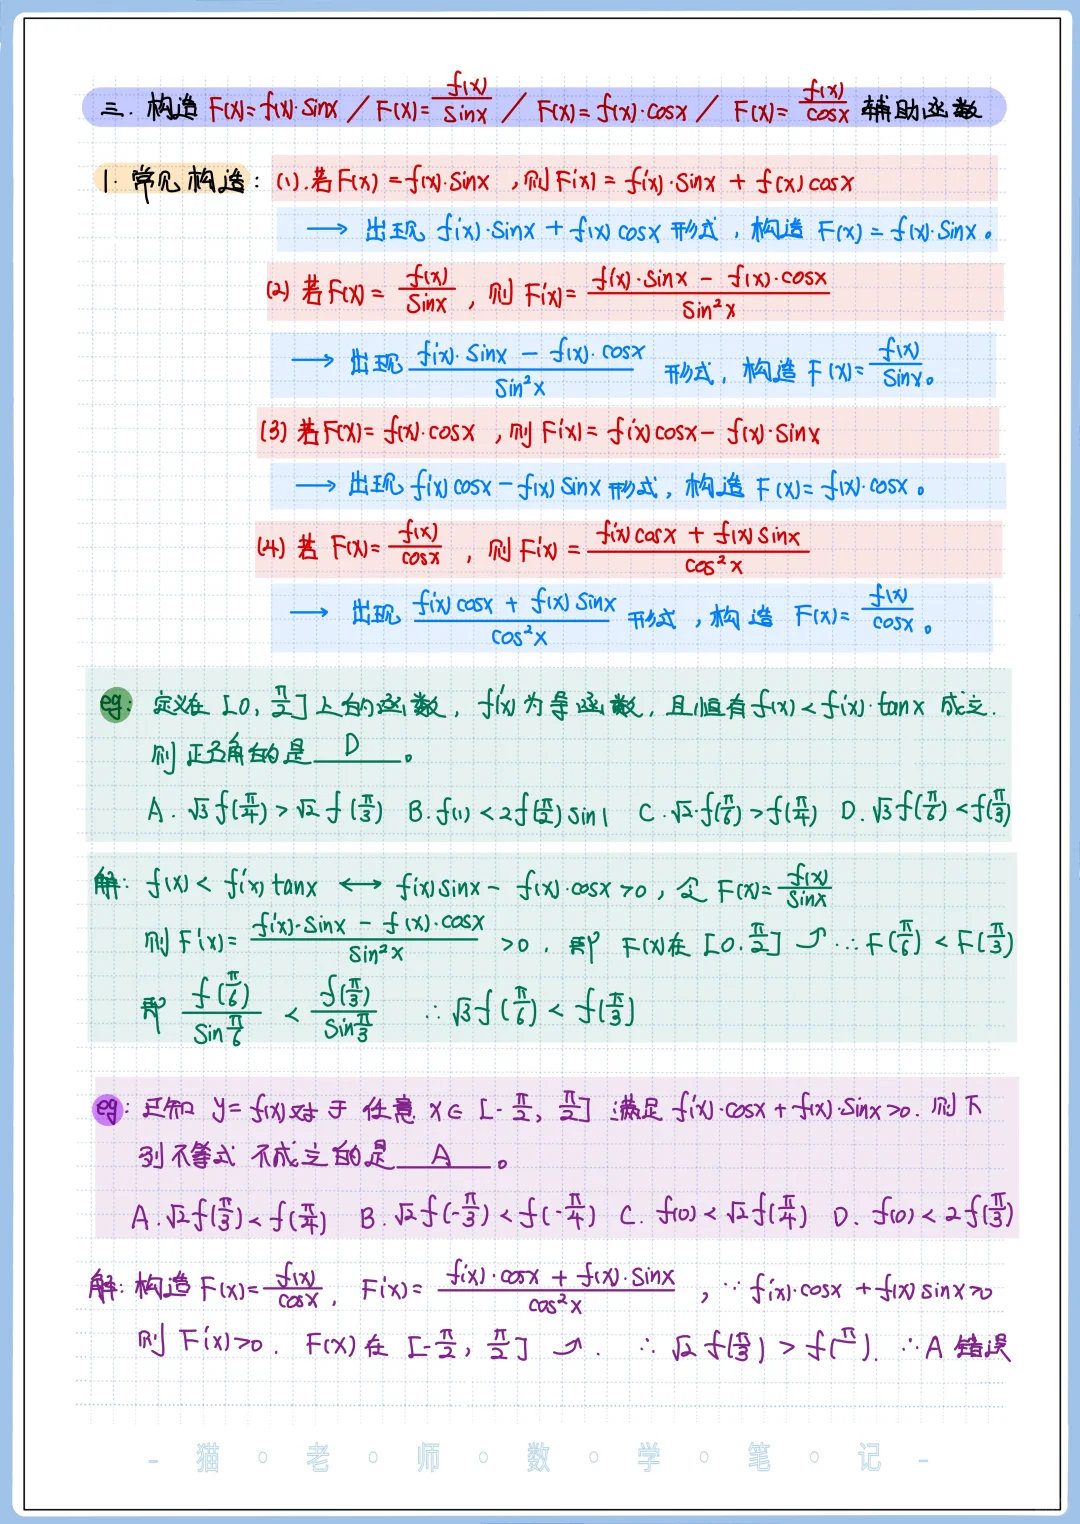 三. 构造 F(x)=f(x)·sinx / F(x)=f(x)/sinx / F(x)=f(x)·cosx / F(x)=f(x)/cosx 辅助函数
1. 常见构造: (1).若F(x)=f(x)·sinx ,则F'(x)=f'(x)·sinx+f(x)cosx
→ 出现 f'(x)·sinx+f(x)cosx 形式, 构造 F(x)=f(x)·sinx。
(2) 若F(x)=f(x)/sinx , 则 F'(x)=(f'(x)·sinx-f(x)·cosx)/sin²x
→ 出现 (f'(x)·sinx-f(x)·cosx)/sin²x 形式, 构造 F(x)=f(x)/sinx。
(3) 若F(x)=f(x)·cosx ,则F'(x)=f'(x)cosx-f(x)·sinx
→ 出现 f'(x)cosx-f(x)sinx 形式, 构造 F(x)=f(x)·cosx。
(4) 若 F(x)=f(x)/cosx , 则F'(x)=(f'(x)cosx+f(x)sinx)/cos²x
→ 出现 (f'(x)cosx+f(x)sinx)/cos²x 形式 ,构造 F(x)=f(x)/cosx。
eg: 定义在 [0, π/2]上的函数, f'(x)为导函数, 且恒有f(x)<f'(x)·tanx 成立.
则正确的是 D 。
A. √3f(π/4)>√2f(π/3) B. f(1)<2f(π/2)sin1 C. √2·f(π/6)>f(π/4) D. √3f(π/6)<f(π/3)
解: f(x)<f'(x)tanx ⟷ f'(x)sinx-f(x)·cosx>0, 令F(x)=f(x)/sinx
则F'(x)=(f'(x)·sinx-f(x)·cosx)/sin²x >0. 即 F(x)在 [0.π/2] ↗ ∴F(π/6)<F(π/3)
即 f(π/6)/sinπ/6 < f(π/3)/sinπ/3 ∴√3f(π/6)<f(π/3)
eg: 已知 y=f(x)对于任意 x∈[-π/2, π/2] 满足 f'(x)·cosx+f(x)·sinx>0. 则下
列不等式 不成立的是 A 。
A. √2f(π/3)<f(π/4) B. √2f(-π/3)<f(-π/4) C. f(0)<√2f(π/4) D. f(0)<2f(π/3)
解: 构造F(x)=f(x)/cosx, F'(x)=(f'(x)·cosx+f(x)·sinx)/cos²x , ∵f'(x)·cosx+f(x)sinx>0
则 F'(x)>0. F(x)在 [-π/2, π/2] ↗. ∴√2f(π/3)>f(π). ∴A错误
- 猫·老·师·数·学·笔·记 -